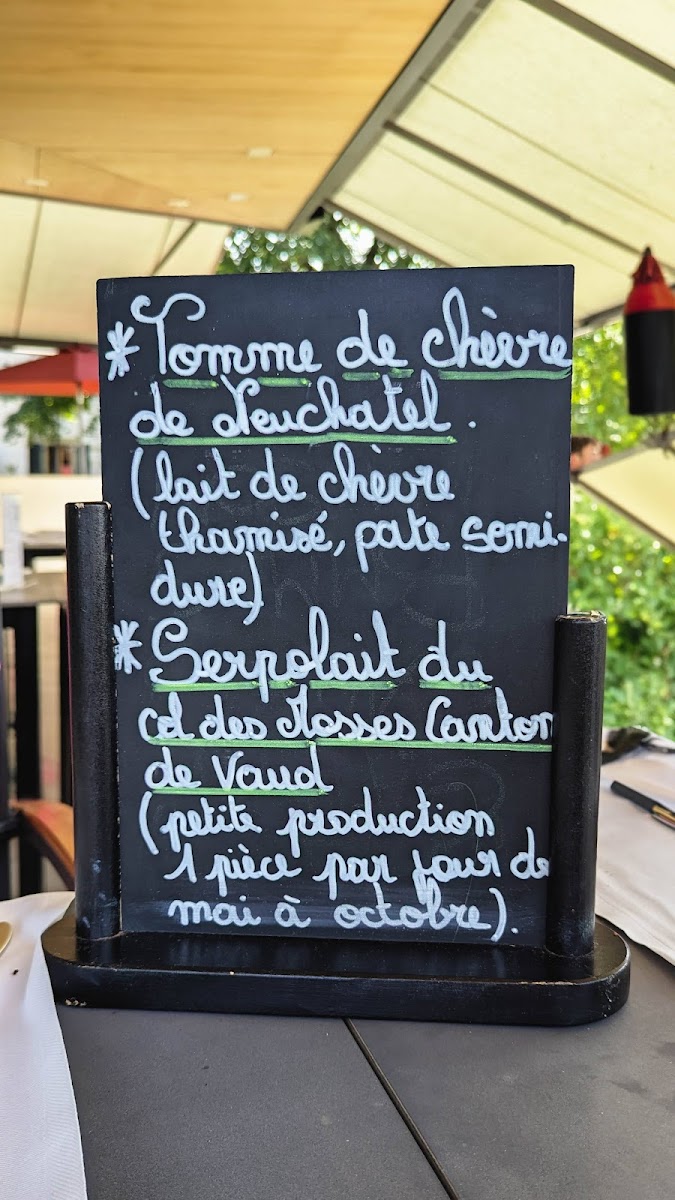 * Tomme de chèvre
de Neuchatel.
(lait de chèvre
thamisé, pate semi-
dure)
* Serpolait du
col des Mosses Canton
de Vaud
(petite production
1 pièce par jour de
mai à octobre).